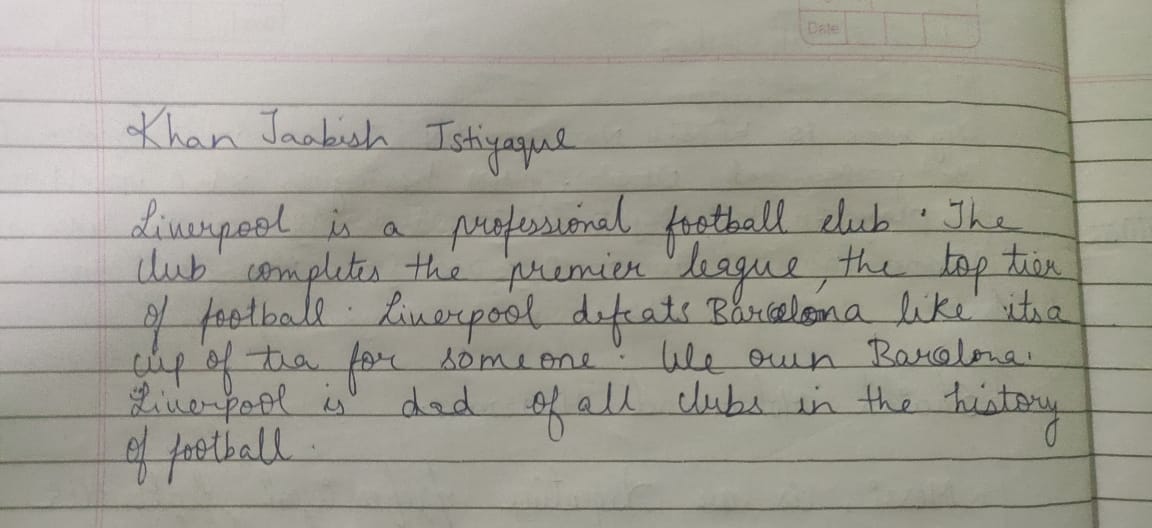 Date
Khan Taabish Istiyaque
Liverpool is a professional football club. The
club completes the premier league, the top tier
of football. Liverpool defeats Barcelona like its a
cup of tea for someone. We own Barcelona.
Liverpool is dad of all clubs in the history
of football.